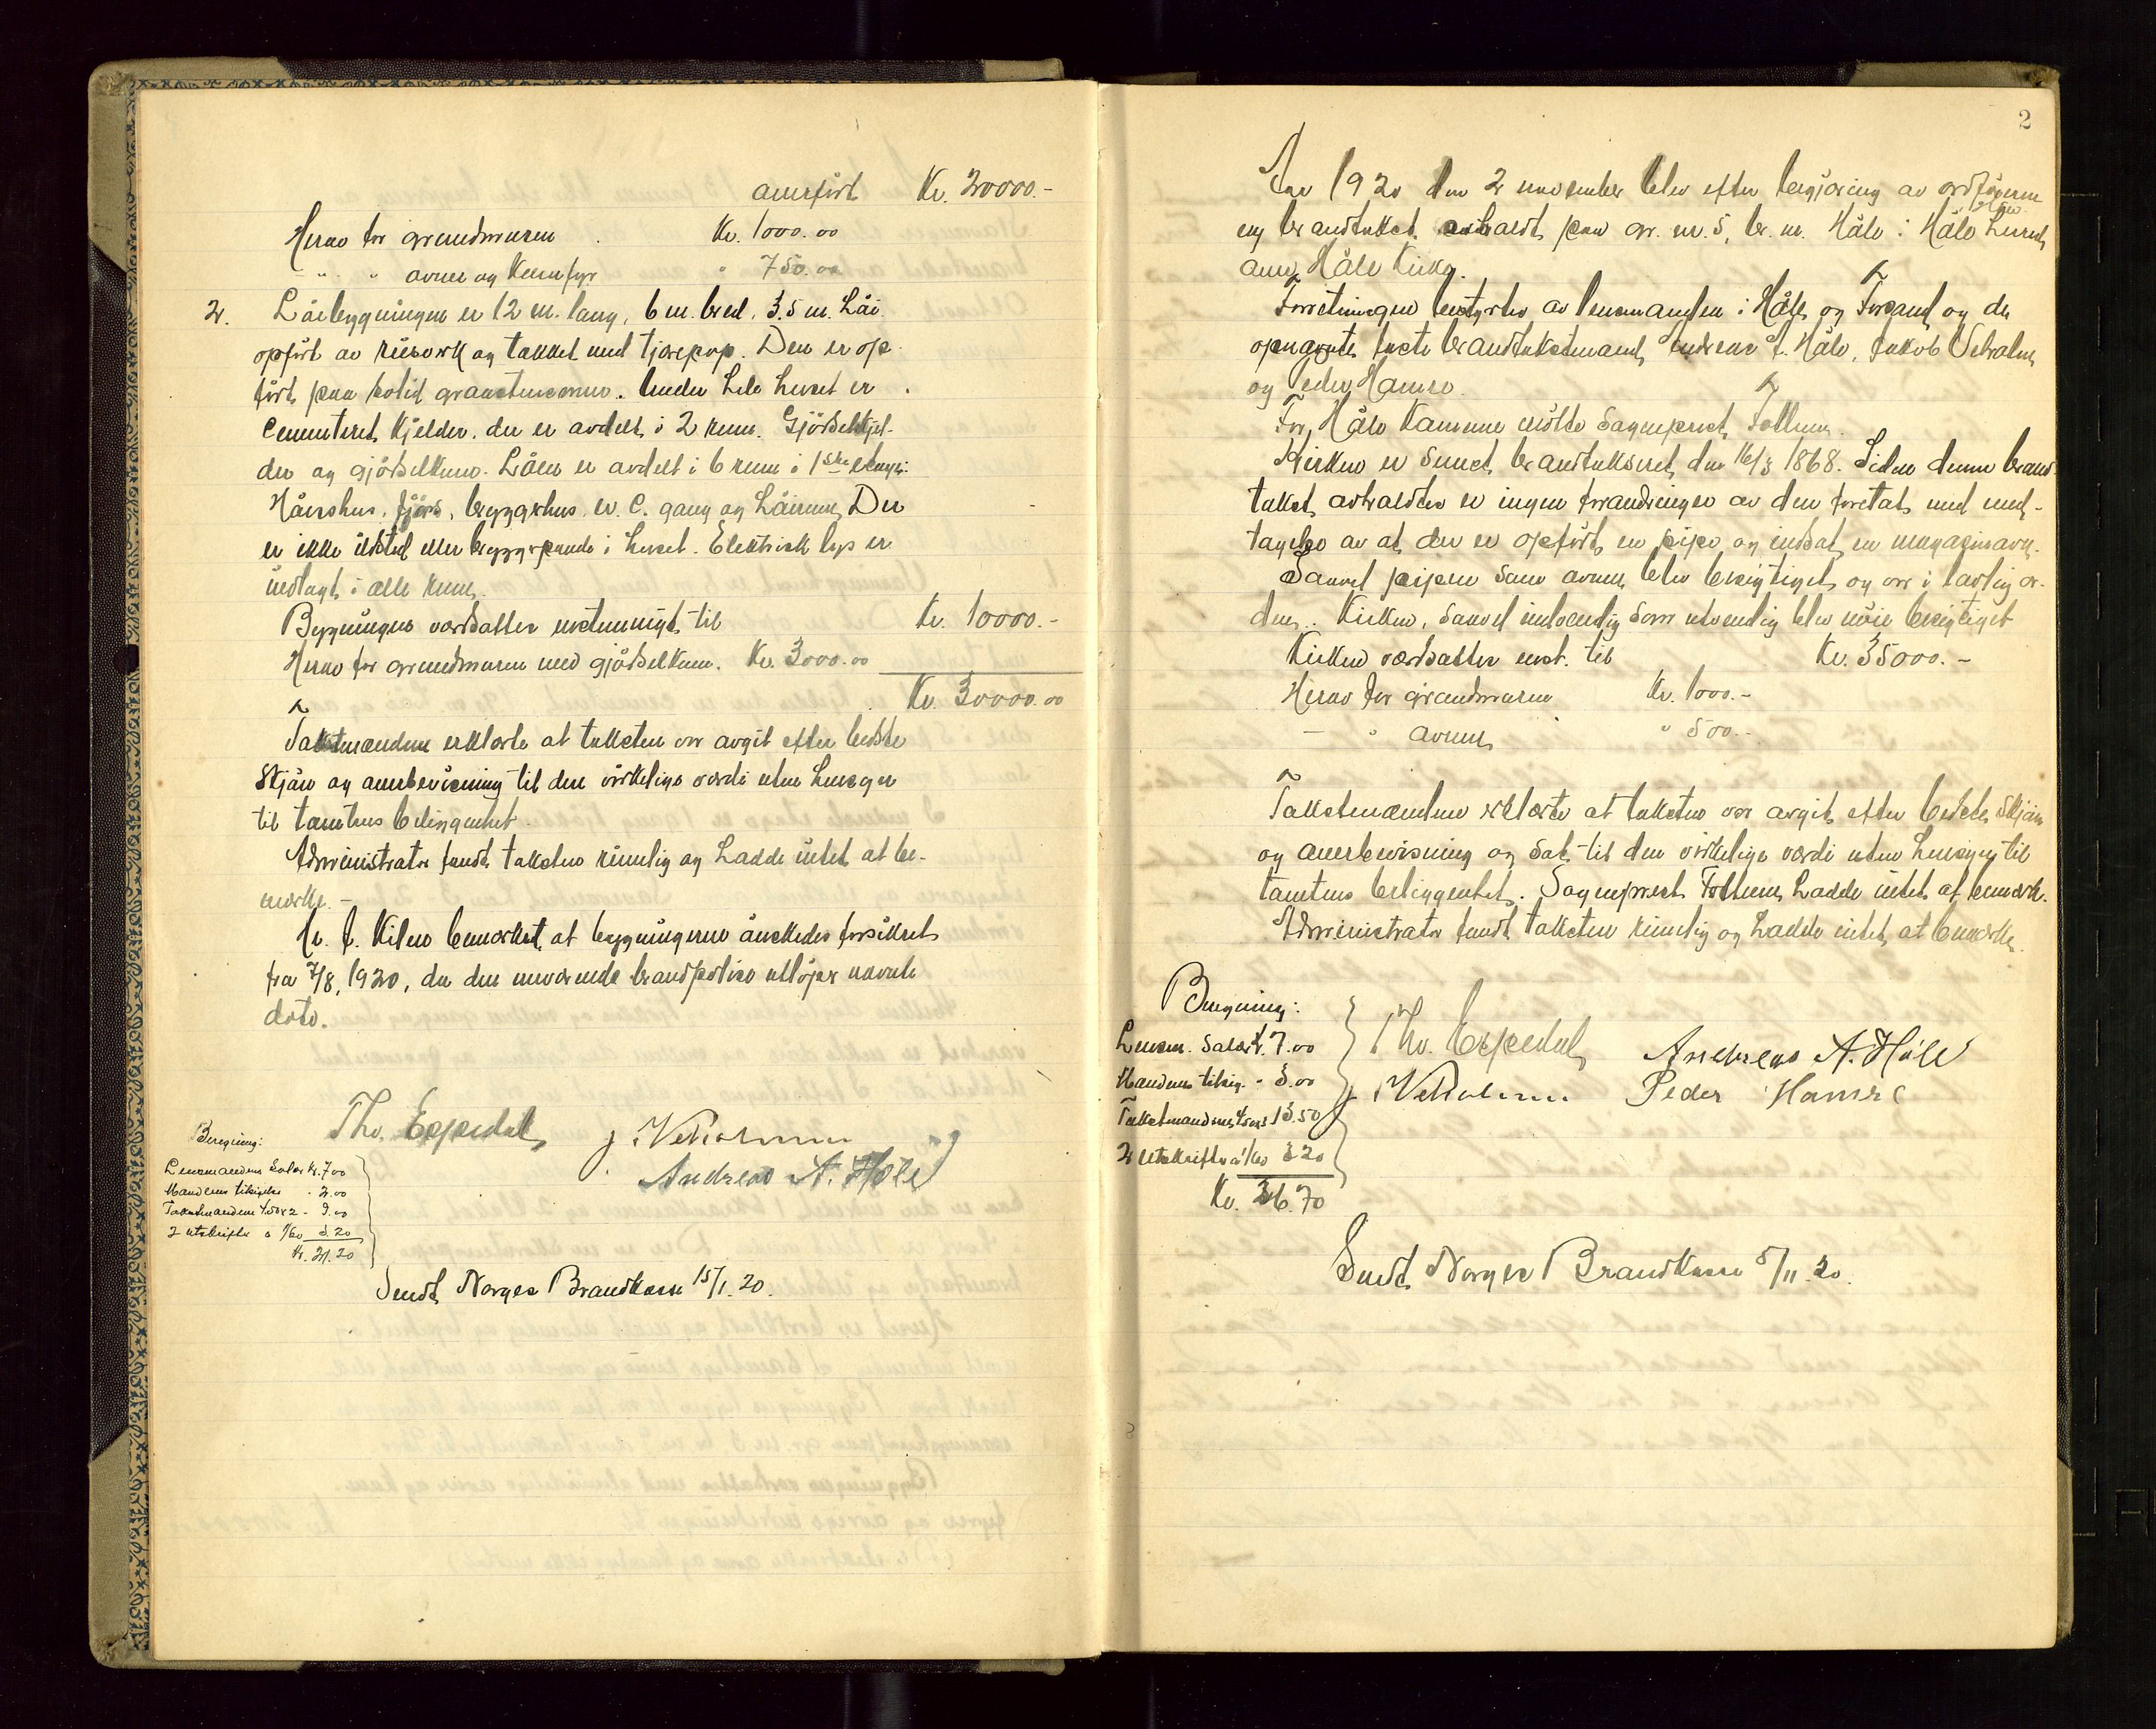 anverført Kr. 20000.-
Herav for grundmuren Kr. 1000.00
" " " ovner og komfyr " 750.00
2. Låebygningen er 12 m. lang, 6 m. bred, 3.5 m. høi
opført av reisverk og tækket med tjærepap. Den er op-
ført paa solid graastensmur. Under hele huset er
cementeret kjelder, der er avdelt i 2 rum. Gjødselkjel-
der og gjødselkum. Låen er avdelt i 6 rum i 1ste etage:
Hønshus, fjøs, bryggerhus, W. C. gang og høirum. Der
er ikke ildsted eller bryggepande i huset. Elektrisk lys er
indlagt i alle rum.
Bygningen værdsattes enstemmigt til Kr. 10000.-
Herav for grundmuren med gjødselkum. Kr. 3000.00
Kr. 30000.00
Takstmændene erklærte at taksten var avgit efter bedste
skjøn og overbevisning til den virkelige værdi uten hensyn
til tomtens beliggenhet.
Administrator fandt taksten rimelig og hadde intet at be-
merke.-
Hr. J. bemerket at bygningerne ønskedes forsikret
fra 7/8, 1920, da den nuværende brandpolise utløper nævnte
dato.
Tho. Espedal J. Vetrhus
Andreas A. Høle
Beregning:
Lensmandens Salær Kr. 7.00
Mandens tilsigelse - 2.00
Takstmændene 4.50 x 2 - 9.00
2 utskrifter a 1/60 3.20
Kr. 21.20
Sendt Norges Brandkasse 15/1. 20.
2
Aar 1920 den 2 november blev efter begjæring av ordføreren
en brandtakst avholdt paa gr. nr. 5, br. nr. Høle i Høle herred
over Høle Kirke.
Forretningen bestyrtes av lensmanden i Høle og Forsand og de
opnævnte faste brandtakstmænd Andreas A. Høle, Jakob
og Peder Hamre.
For Høle Kommune møtte Sogneprest
Kirken er sidst brandtakseret den 16/3 1868. Siden denne brand
takst avholdtes er ingen forandringer av den foretat, med und-
tagelse av at der er opført en pipe og indsat en magasinovn.
Saavel pipen som ovnen blev besigtiget og var i lovlig or-
den. Kirken, saavel indvendig som utvendig blev nøie besigtiget
Kirken værdsattes enst. til Kr. 35000.-
Herav for grundmuren Kr. 1000.-
- " ovnen " 500.-
Takstmændene erklærte at taksten var avgit efter bedste skjøn
og overbevisning og sat til den virkelige værdi uten hensyn til
tomtens beliggenhet. Sogneprest hadde intet at bemerke.
Administrator fandt taksten rimelig og hadde intet at bemerke.
Beregning:
Lensm. Salær Kr. 7.00
Mandens tilsig. - 3.00
Takstmændene 13.50
2 utskrifter a 1/60 3.20
Kr. 26.70
Tho. Espedal Andreas A. Høle
J. Peder Hamre
Sendt Norges Brandkasse 5/11. 20.